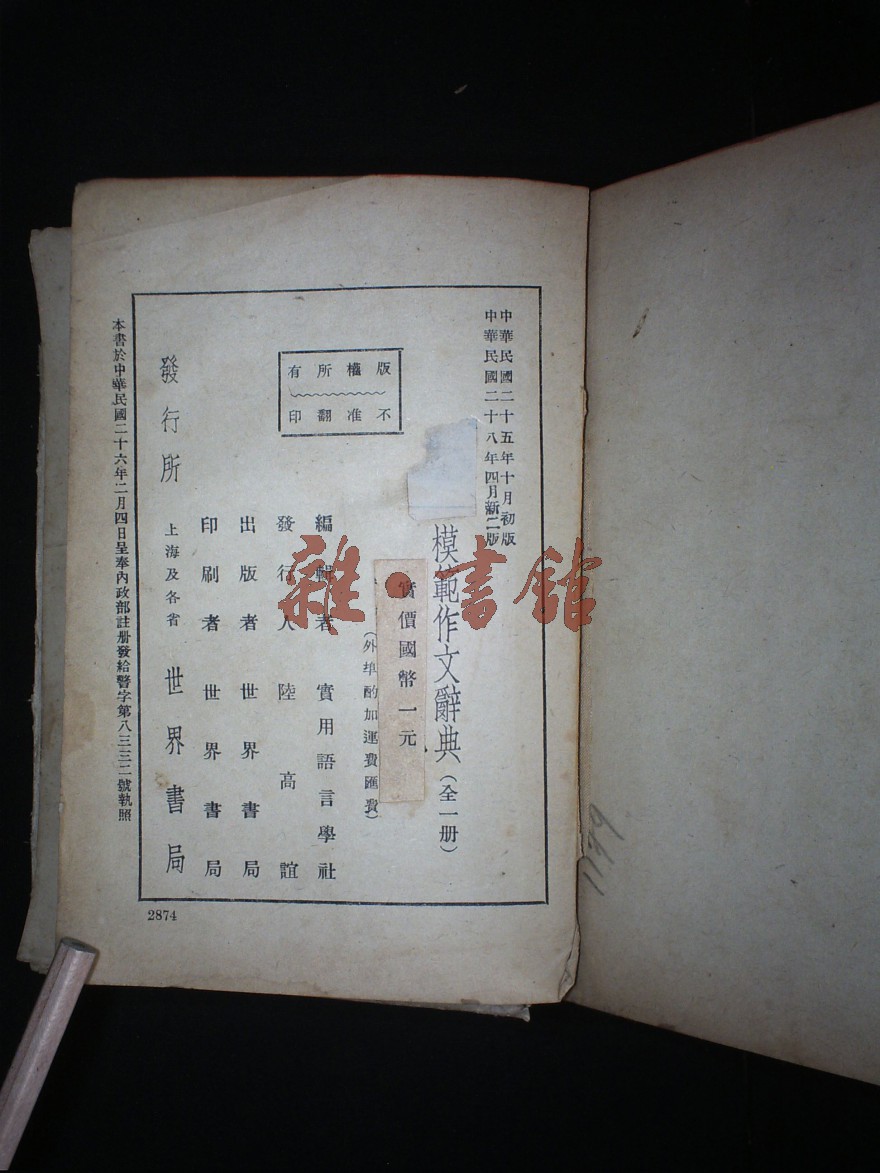 中華民國二十五年十月初版
中華民國二十八年四月新二版
模範作文辭典（全一册）
實價國幣一元
（外埠酌加運費匯費）
版權所有
不准翻印
編輯者 實用語言學社
發行人 陸高誼
出版者 世界書局
印刷者 世界書局
發行所 上海及各省 世界書局
本書於中華民國二十六年二月四日呈奉內政部註册發給警字第八三三二號執照
2874
1179
雜·書館